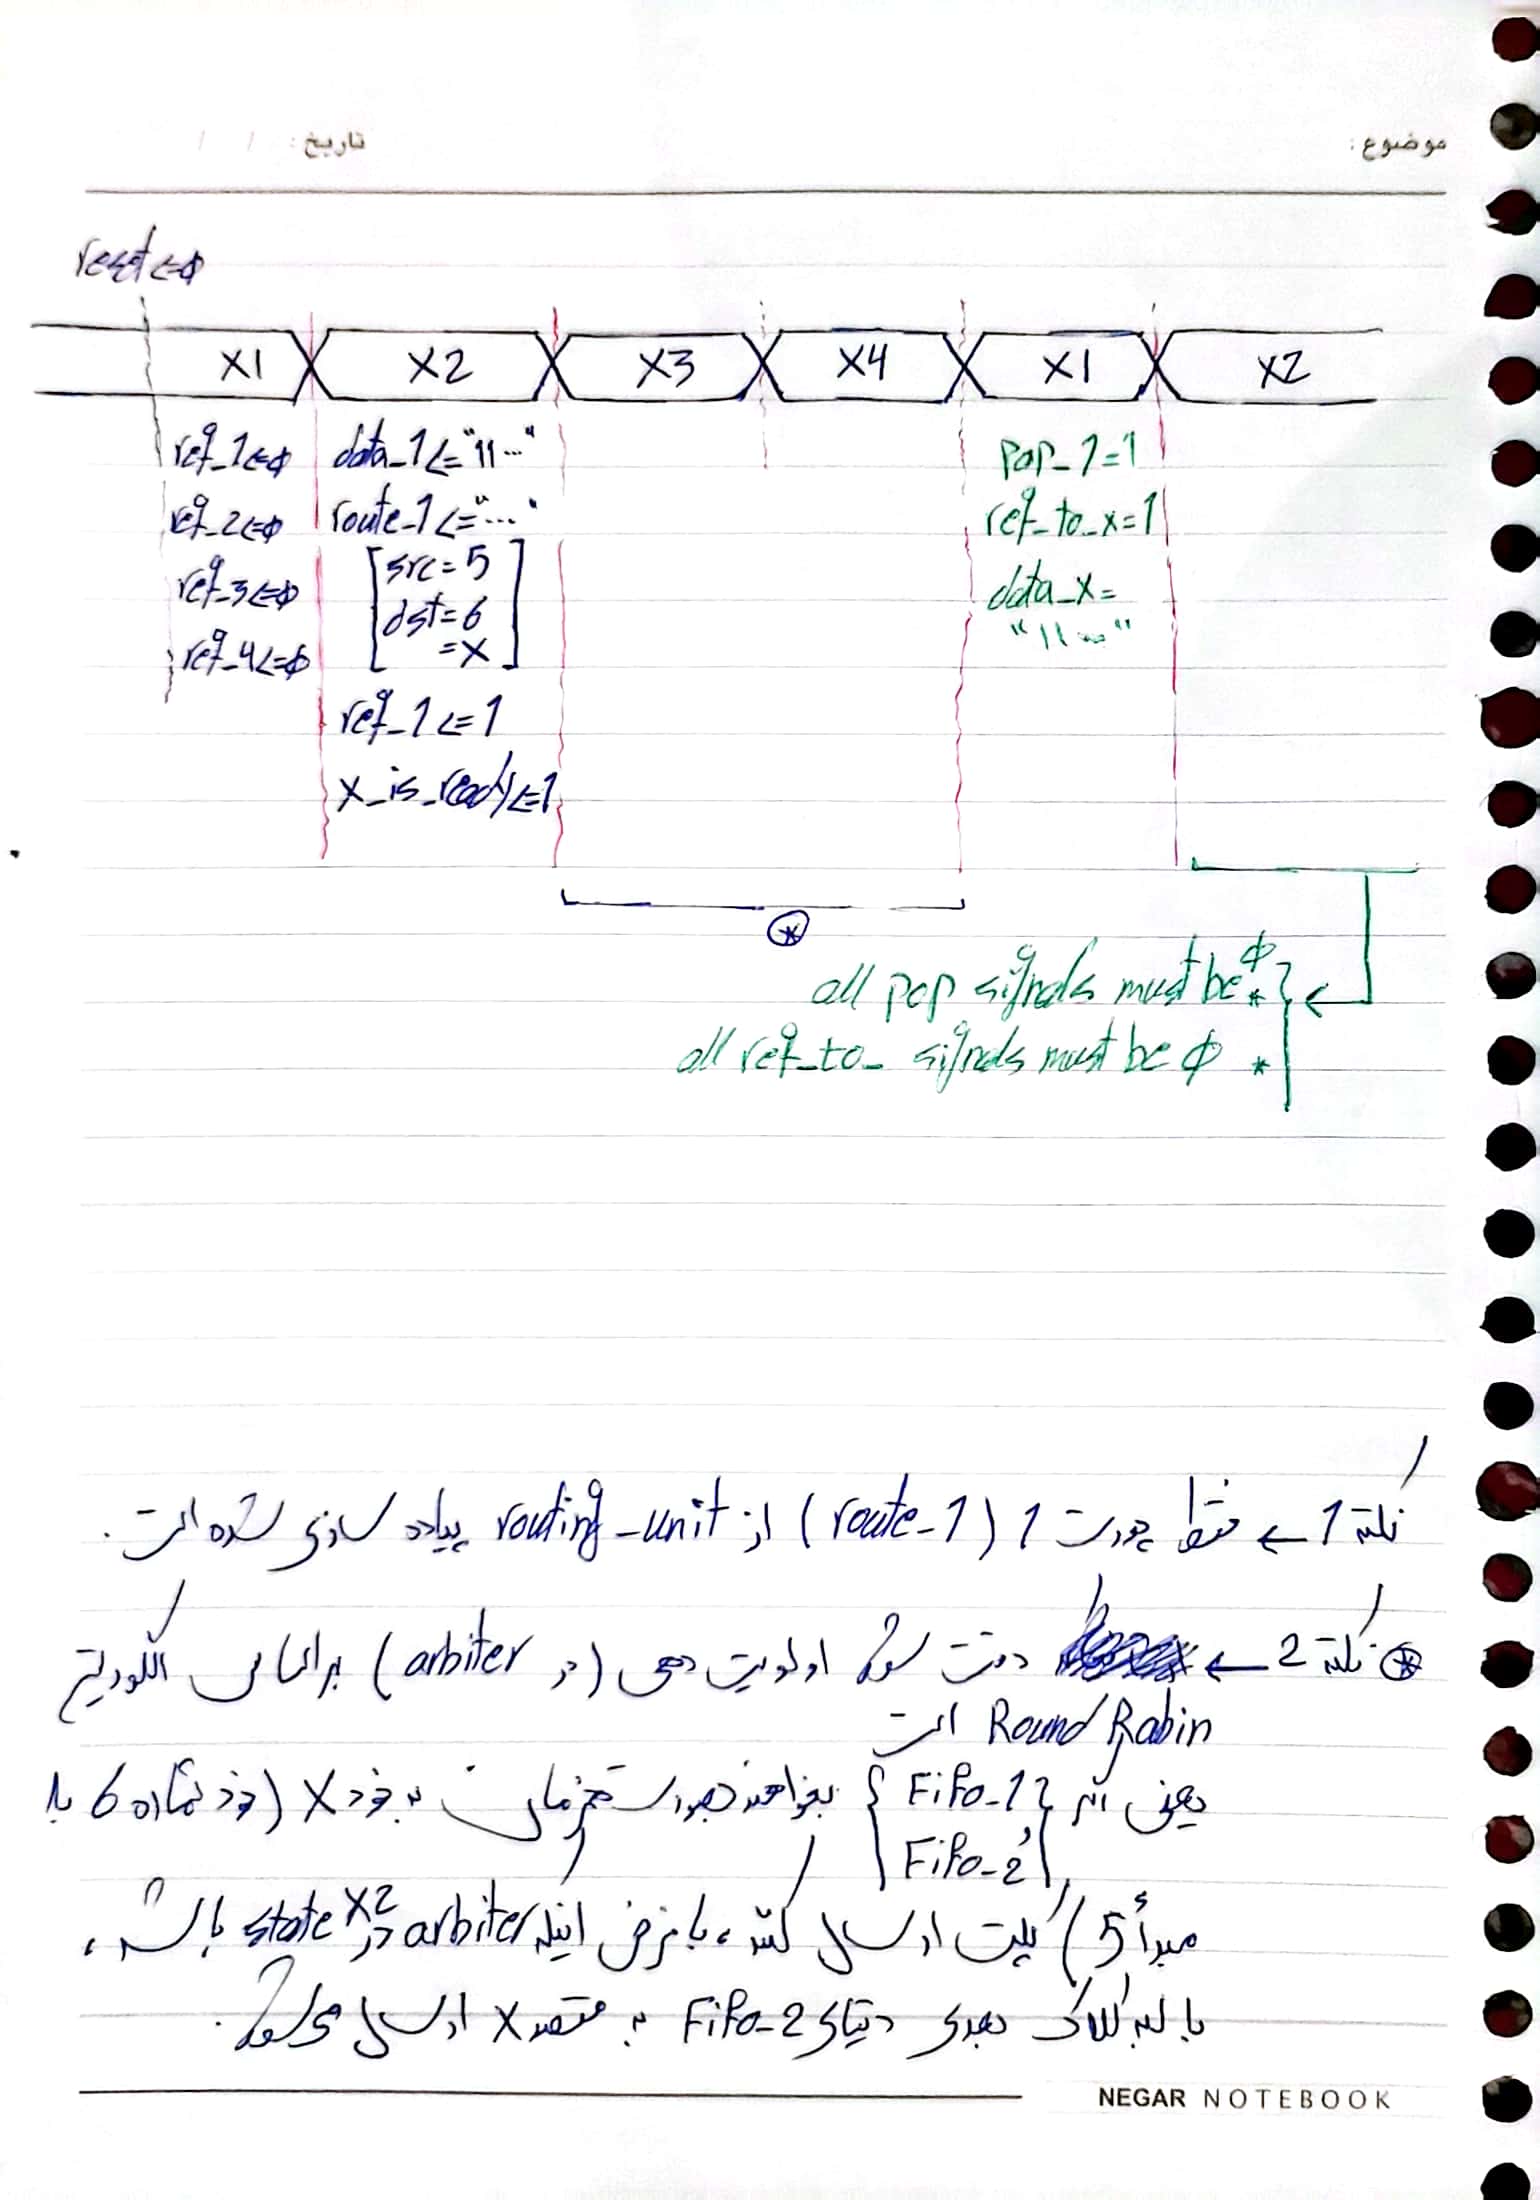 موضوع :
تاریخ :   /   /
reset <= ϕ
X1 X2 X3 X4 X1 X2
req_1 <= ϕ
req_2 <= ϕ
req_3 <= ϕ
req_4 <= ϕ
data_1 <= "11..."
route_1 <= "..."
[src = 5
dst = 6
= X]
req_1 <= 1
X_is_ready <= 1
pop_1 = 1
req_to_x = 1
data_x =
"11..."
⊛
all pop signals must be ϕ *
all req_to_ signals must be ϕ *
نکته 1 ← فقط پورت 1 (route_1) از routing_unit پیاده سازی شده است.
⊛ نکته 2 ← دقت شود اولویت دهی (در arbiter) براساس الگوریتم
Round Rabin است
یعنی اگر { FiFo_1 , FiFo_2 } بخواهند بصورت همزمان به نود X (نود شماره 6 با
مبدأ 5) پکت ارسال کنند، با فرض اینکه arbiter در state X2 باشد،
با لبه کلاک بعدی دیتای FiFo_2 به مقصد X ارسال می شود.
NEGAR NOTEBOOK